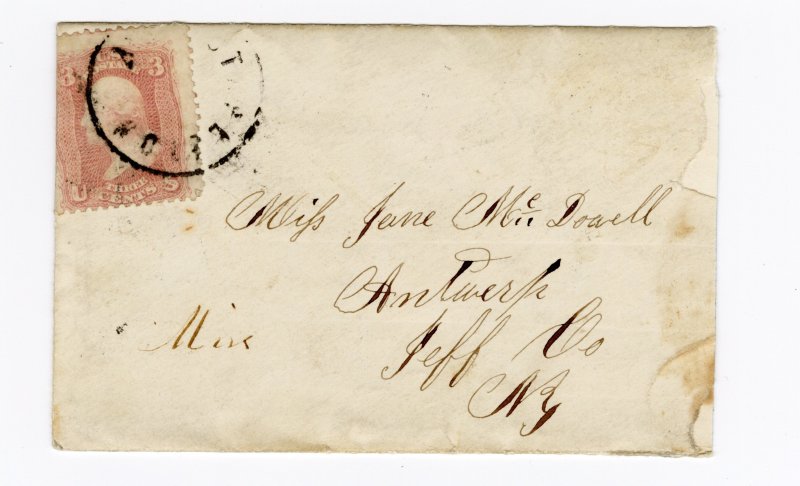 3 3
U THREE S
CENTS
Miss Jane Mc Dowell
Antwerp
Jeff Co
NY